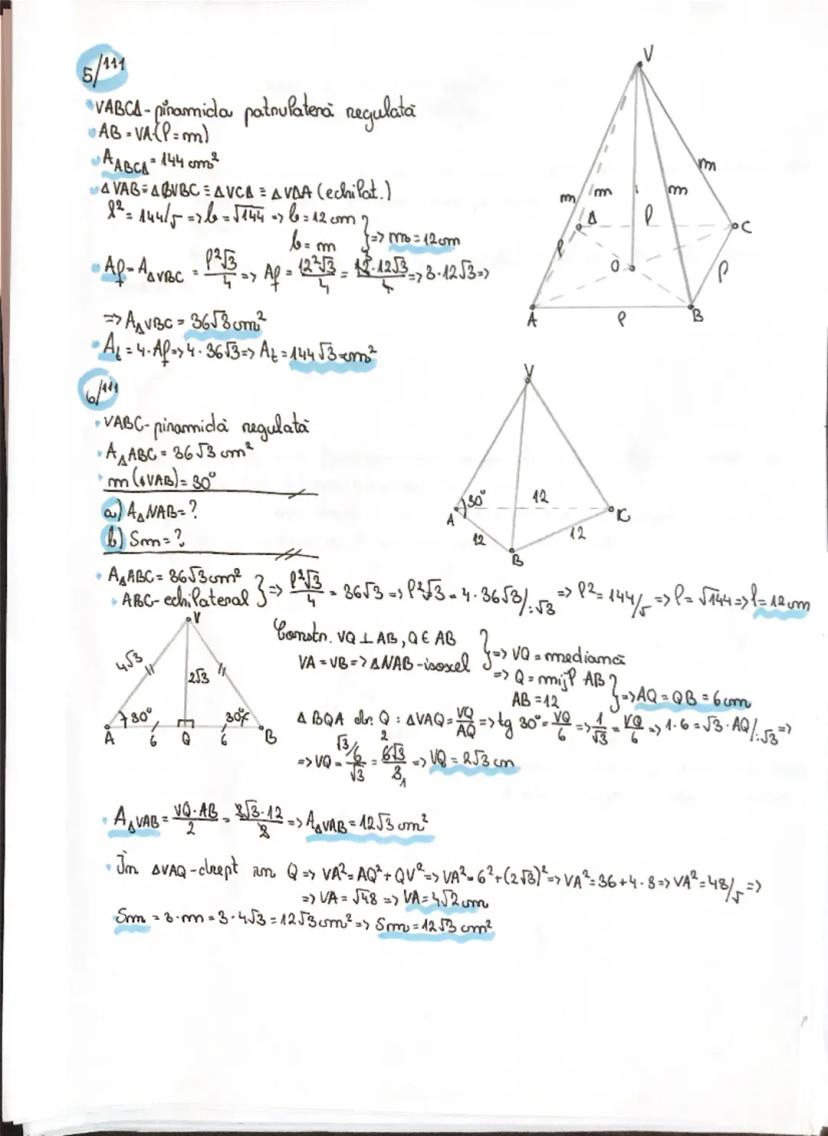 5/111
VABCΔ-piramida patrulateră regulată
AB = VA (l = m)
A ABCΔ = 144 cm²
Δ VAB ≡ ΔBVBC ≡ ΔVCΔ ≡ ΔVΔA (echilat.)
l² = 144/√ => l = √144 => l = 12 cm
l = m } => m = 12cm
Af = A ΔVBC = l²√3/4 => Af = 12²√3/4 = 12·12√3/4 => 3·12√3 =>
=> A ΔVBC = 36√3 cm²
At = 4·Af => 4·36√3 => At = 144√3 cm²
V
m
m
m
m
Δ
l
C
l
O
l
A
l
B
6/111
VABC-piramidă regulată
A ΔABC = 36√3 cm²
m(∢VAB) = 30°
a) A ΔVAB = ?
b) Sm = ?
V
30°
12
A
C
12
12
B
A ΔABC = 36√3 cm²
ABC-echilateral } => l²√3/4 = 36√3 => l²√3 = 4·36√3/:√3 => l² = 144/√ => l = √144 => l = 12cm
V
4√3
2√3
30°
30°
A
6
Q
6
B
Constr. VQ ⊥ AB, Q ∈ AB
VA = VB => ΔVAB-isoxel } => VQ = mediană
=> Q = mijl AB
AB = 12 } => AQ = QB = 6cm
Δ BQA dr. Q : ΔVAQ = VQ/AQ => tg 30° = VQ/6 => 1/√3 = VQ/6 => 1·6 = √3·AQ/:√3 =>
=> VQ = 6/√3 = 6√3/3 => VQ = 2√3 cm
A ΔVAB = VQ·AB/2 = 2√3·12/2 => A ΔVAB = 12√3 cm²
În ΔVAQ-drept în Q => VA² = AQ² + QV² => VA² = 6² + (2√3)² => VA² = 36 + 4·3 => VA² = 48/√ =>
=> VA = √48 => VA = 4√2 cm
Sm = 3·m = 3·4√3 = 12√3 cm² => Sm = 12√3 cm²